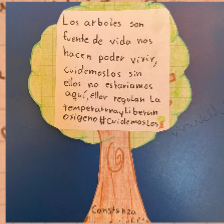 Los arboles son
fuente de vida nos
hacen poder vivir,
cuidemoslos sin
ellos no estariamos
aquí, ellos regulan La
temperatura y Liberan
oxigeno #Cuidemoslos
Constanza